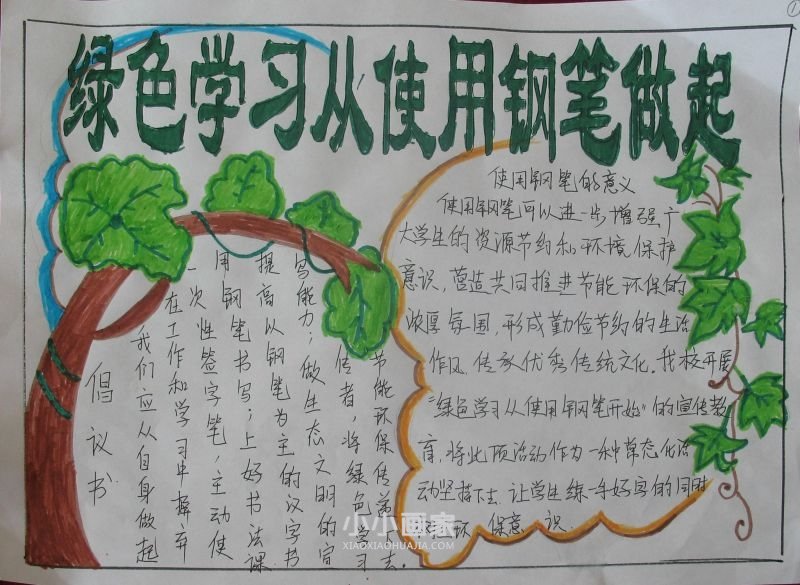 ①
绿色学习从使用钢笔做起
倡议书
我们应从自身做起
在工作和学习中摒弃
一次性签字笔，主动使
用钢笔书写；上好书法课
提高以钢笔为主的汉字书
写能力；做生态文明的宣
传者，将绿色学习
节能环保传弟去。
使用钢笔的意义
使用钢笔可以进一步增强广
大学生的资源节约和环境保护
意识，营造共同推进节能环保的
浓厚氛围，形成勤俭节约的生活
作风，传承优秀传统文化，我校开展
“绿色学习从使用钢笔开始”的宣传教
育，将此项活动作为一种常态化活
动坚持下去，让学生练一手好字的同时
环保意识.
小小画家
XIAOXIAOHUAJIA.COM